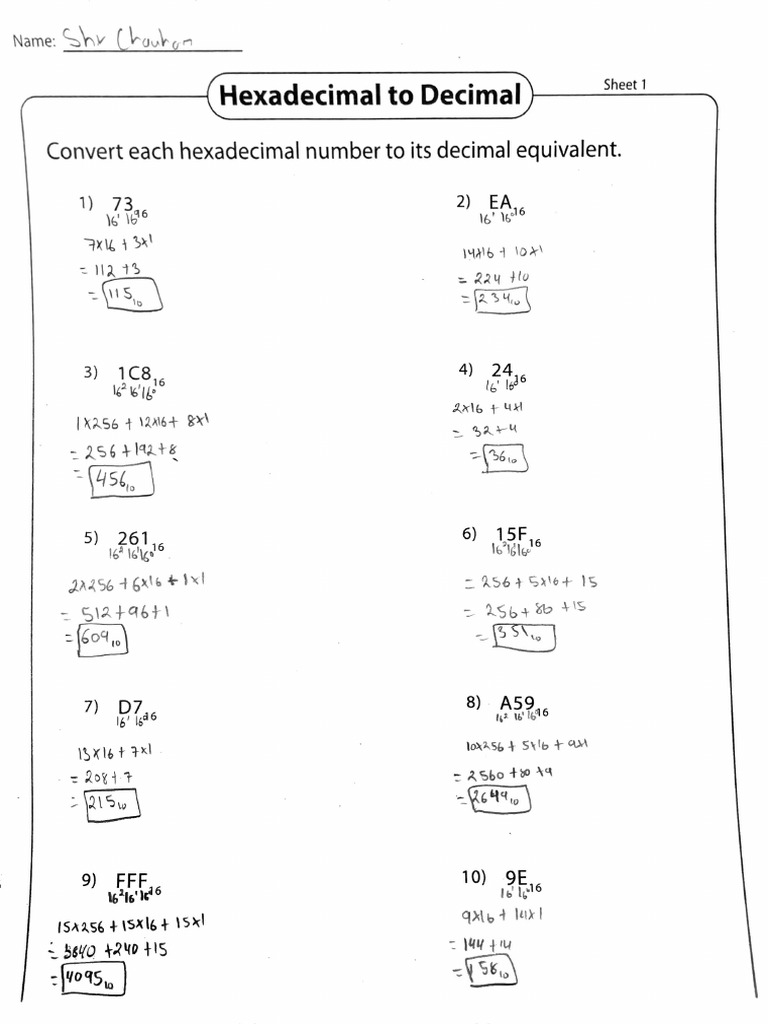 Name: Shv Chauhan
Hexadecimal to Decimal
Sheet 1
Convert each hexadecimal number to its decimal equivalent.
1) 73₁₆
16¹ 16⁰
7×16 + 3×1
= 112 + 3
= 115₁₀
2) EA₁₆
16¹ 16⁰
14×16 + 10×1
= 224 + 10
= 234₁₀
3) 1C8₁₆
16² 16¹ 16⁰
1×256 + 12×16 + 8×1
= 256 + 192 + 8
= 456₁₀
4) 24₁₆
16¹ 16⁰
2×16 + 4×1
= 32 + 4
= 36₁₀
5) 261₁₆
16² 16¹ 16⁰
2×256 + 6×16 + 1×1
= 512 + 96 + 1
= 609₁₀
6) 15F₁₆
16² 16¹ 16⁰
= 256 + 5×16 + 15
= 256 + 80 + 15
= 351₁₀
7) D7₁₆
16¹ 16⁰
13×16 + 7×1
= 208 + 7
= 215₁₀
8) A59₁₆
16² 16¹ 16⁰
10×256 + 5×16 + 9×1
= 2560 + 80 + 9
= 2649₁₀
9) FFF₁₆
16² 16¹ 16⁰
15×256 + 15×16 + 15×1
= 3840 + 240 + 15
= 4095₁₀
10) 9E₁₆
16¹ 16⁰
9×16 + 14×1
= 144 + 14
= 158₁₀